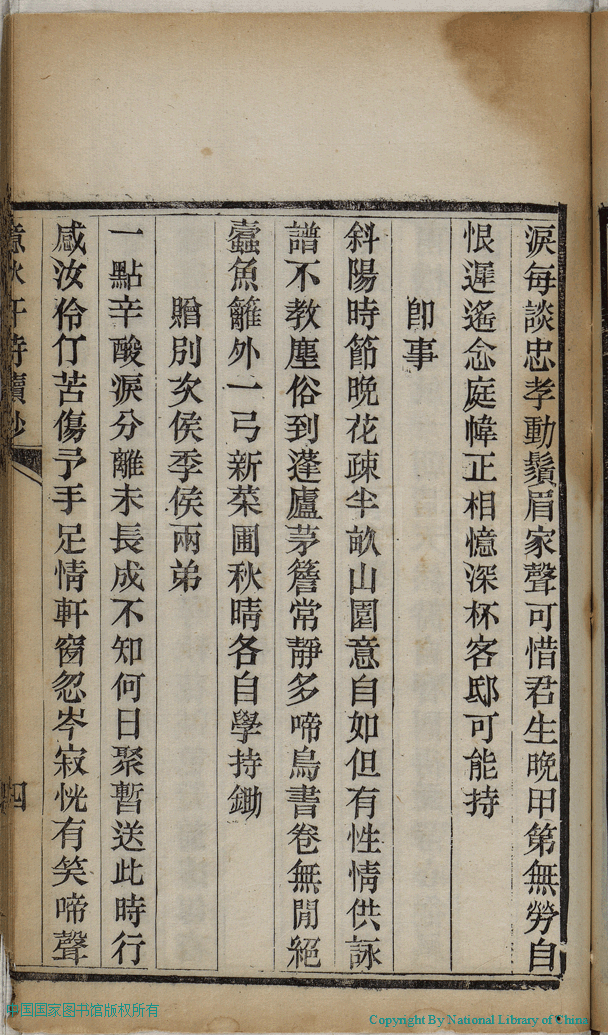 淚每談忠孝動鬚眉家聲可惜君生晚甲第無勞自
恨遲遙念庭幃正相憶深杯客邸可能持
卽事
斜陽時節晚花疎半畝山園意自如但有性情供詠
譜不教塵俗到蓬廬茅簷常靜多啼鳥書卷無閒絕
蠹魚籬外一弓新菜圃秋晴各自學持鋤
贈別次侯季侯兩弟
一點辛酸淚分離未長成不知何日聚暫送此時行
感汝伶仃苦傷予手足情軒窗忽岑寂恍有笑啼聲
意秋軒詩續鈔
四
中国国家图书馆版权所有
Copyright By National Library of China